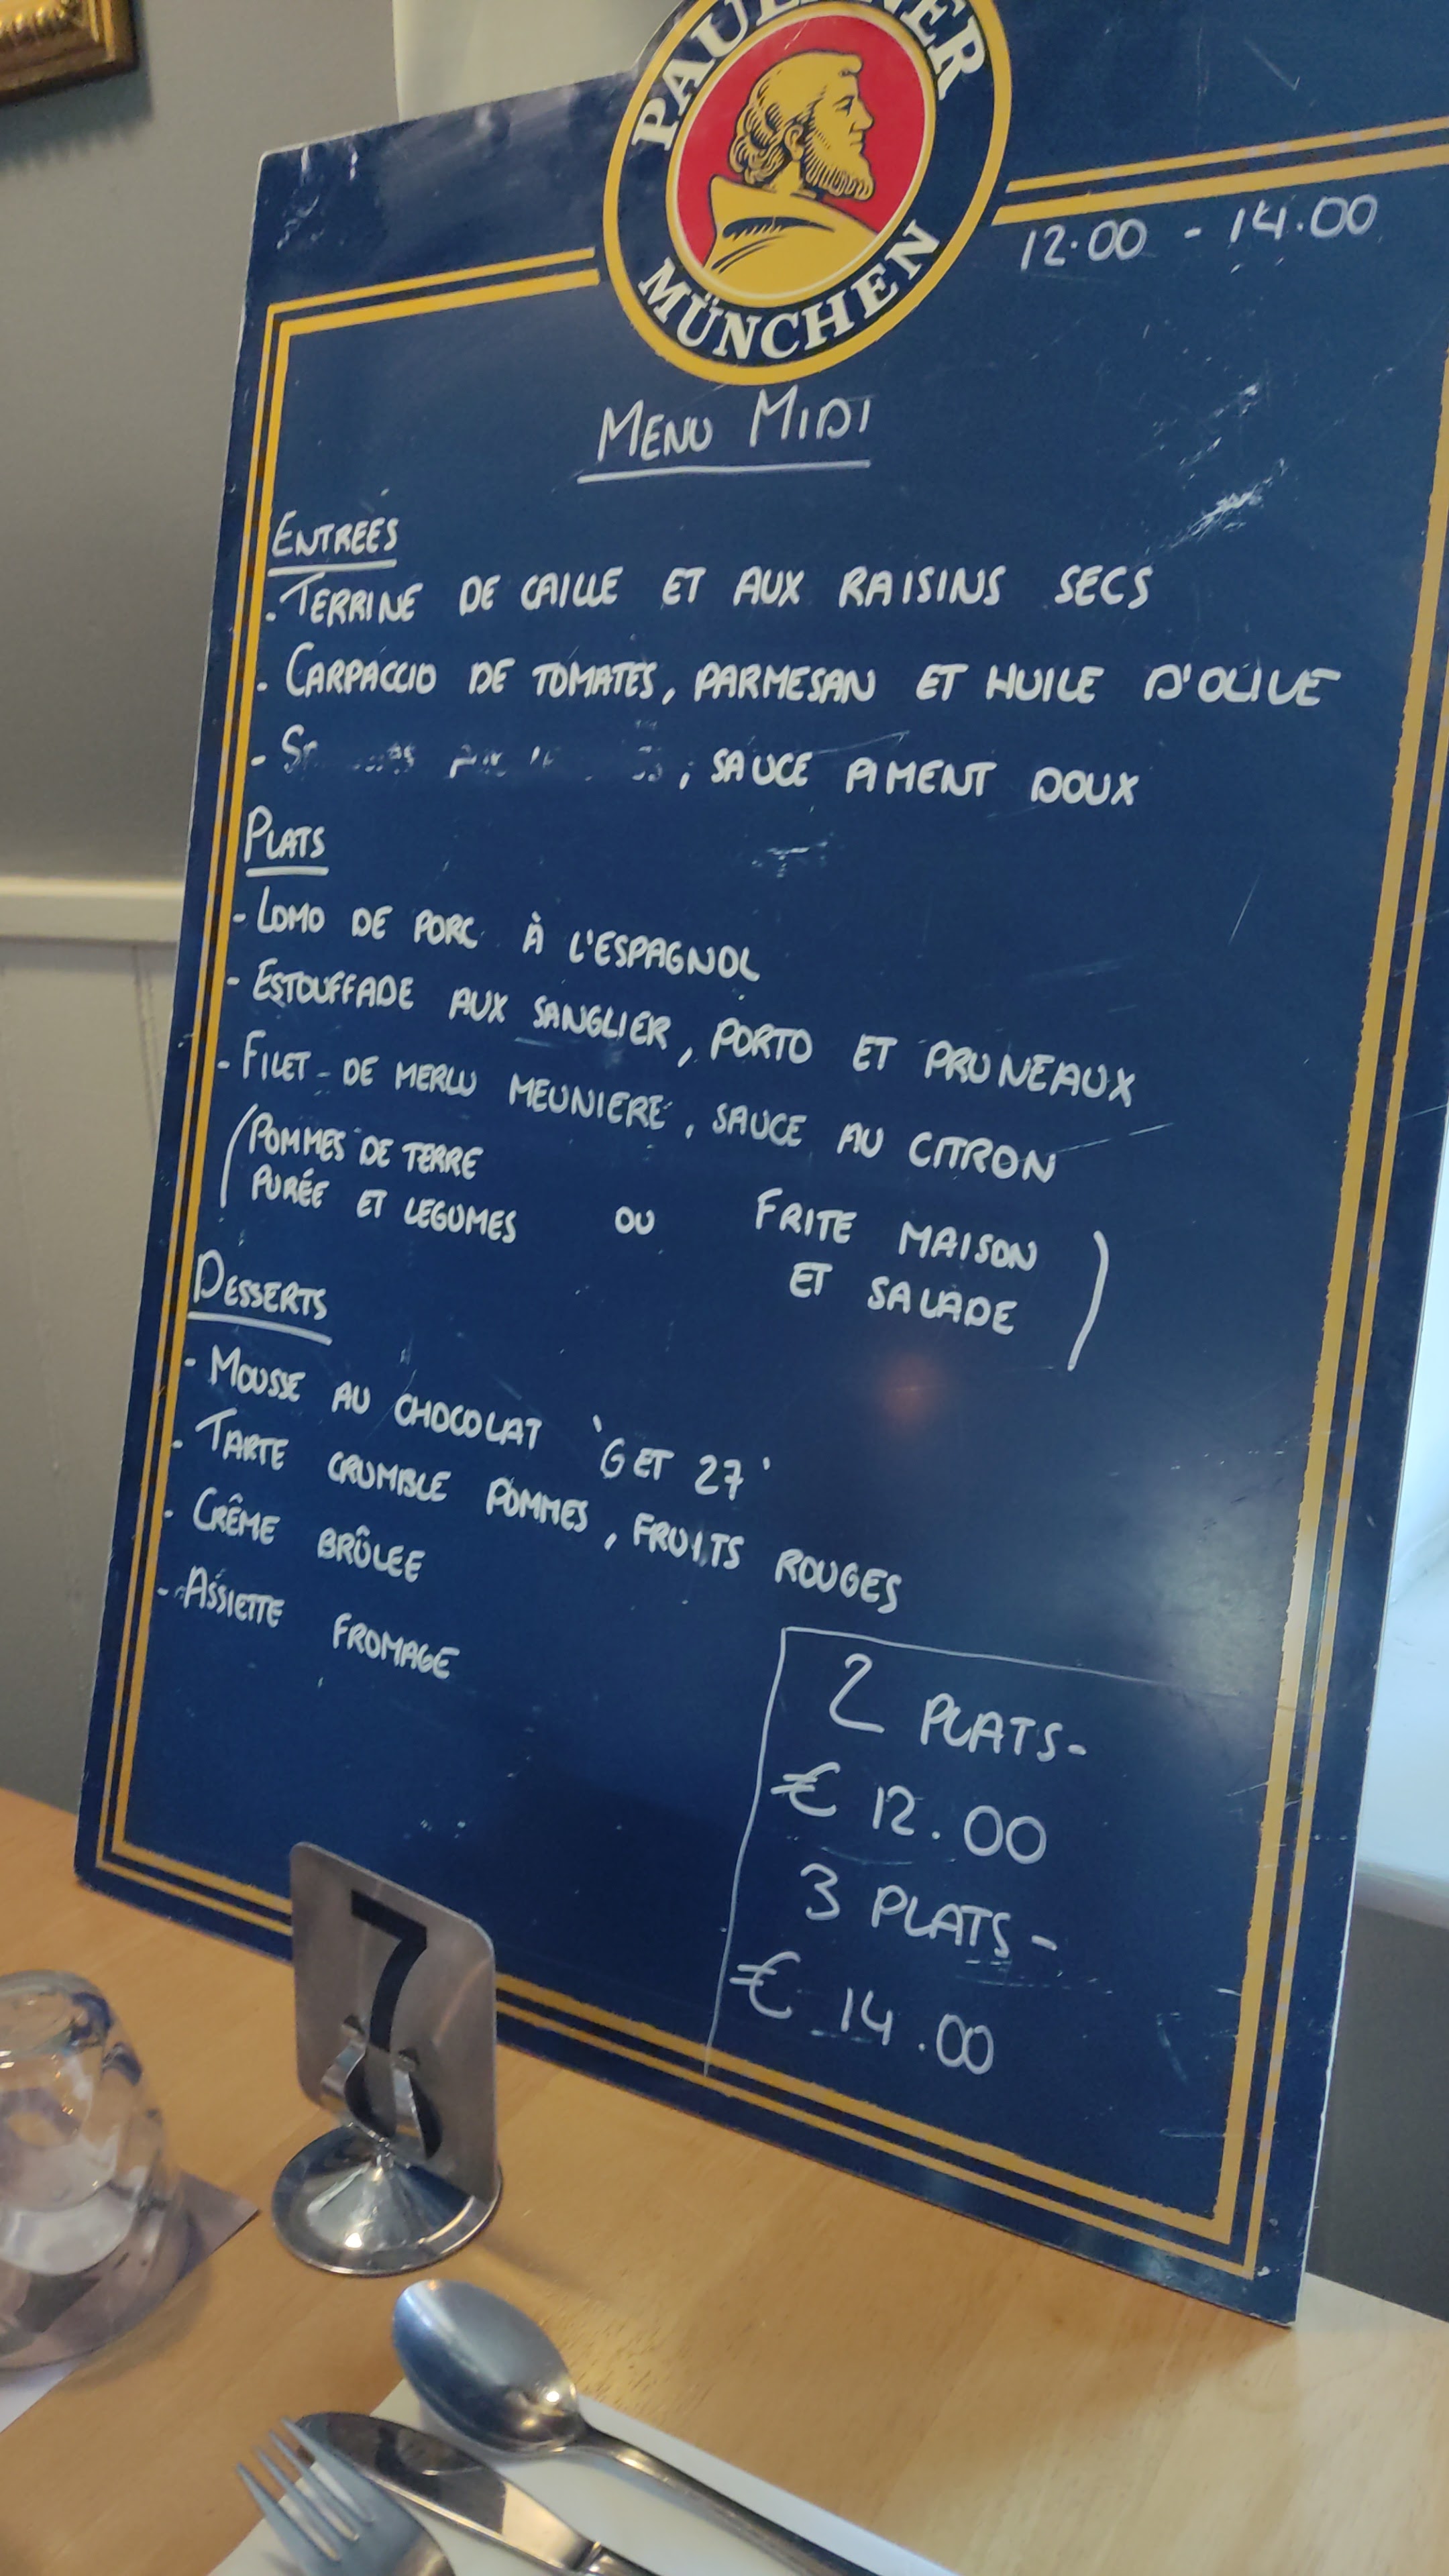 PAULANER
MÜNCHEN
12.00 - 14.00
MENU MIDI
ENTREES
- TERRINE DE CAILLE ET AUX RAISINS SECS
- CARPACCIO DE TOMATES, PARMESAN ET HUILE D'OLIVE
- , SAUCE PIMENT DOUX
PLATS
- LOMO DE PORC À L'ESPAGNOL
- ESTOUFFADE AUX SANGLIER, PORTO ET PRUNEAUX
- FILET DE MERLU MEUNIERE, SAUCE AU CITRON
(POMMES DE TERRE
PURÉE ET LEGUMES OU FRITE MAISON
ET SALADE)
DESSERTS
- MOUSSE AU CHOCOLAT 'GET 27'
- TARTE CRUMBLE POMMES, FRUITS ROUGES
- CRÊME BRÛLEE
- ASSIETTE FROMAGE
2 PLATS-
€ 12.00
3 PLATS-
€ 14.00
7